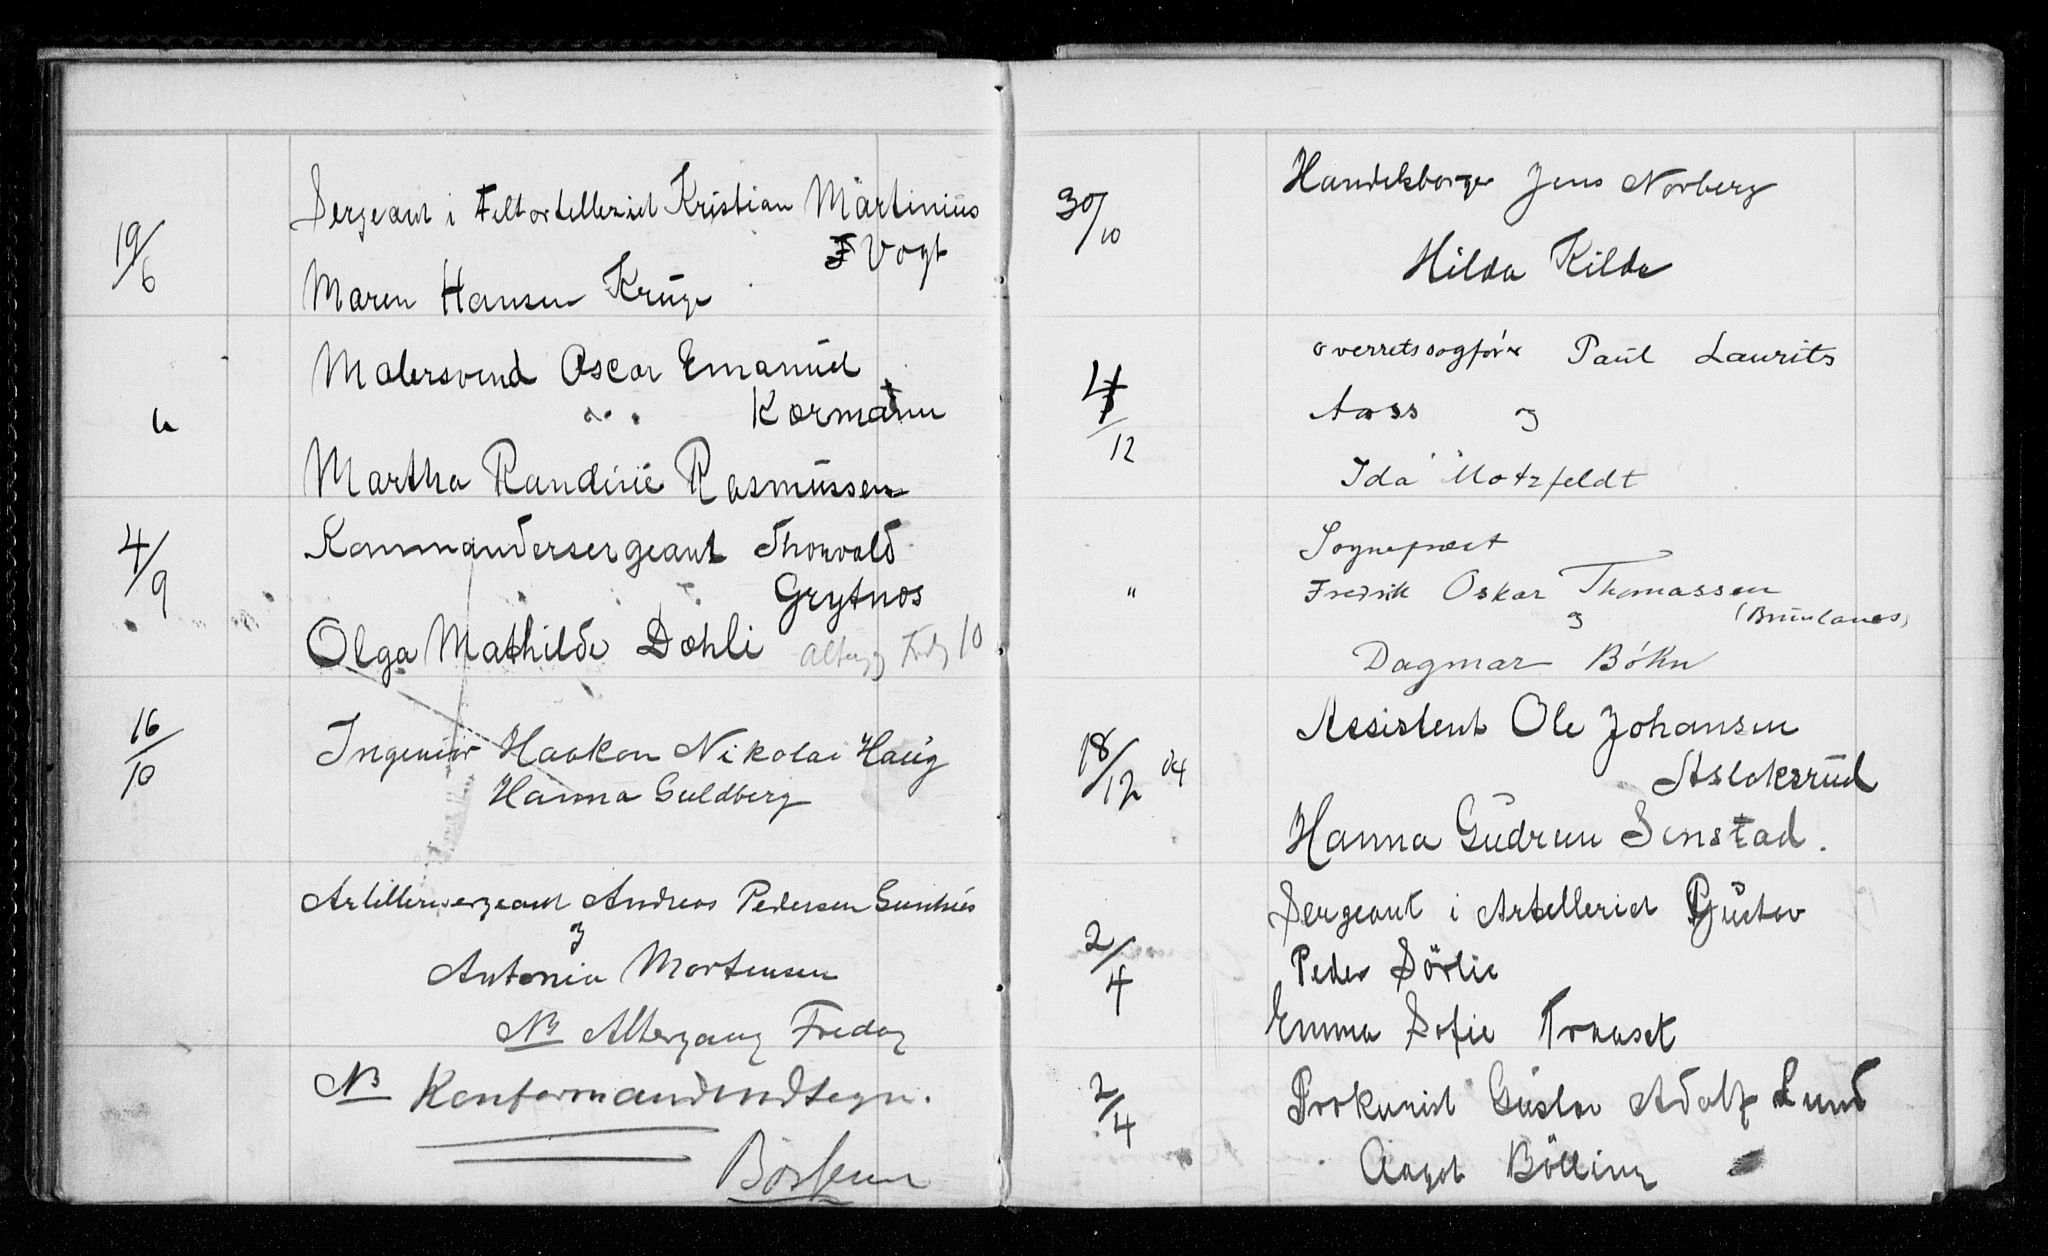 19/6
Sergeant i Feltartelleriet Kristian Martinius
Vogt
Maren Hansen Kruge
"
Malersvend Oscar Emanuel
Kormann
Martha Randine Rasmussen
4/9
Kommandersergeant Thorvald
Grytnes
Olga Mathilde Dæhli Alterg Fredg 10
16/10
Ingeniør Haakon Nikolai Haug
Hanna Guldberg
Artillerisergeant Andreas Pedersen
og
Antonia Mortensen
NB Altergang Fredag
NB Konfermandindtegn.
30/10
Handelsborger Jens Norberg
Hilda Kilde
4/12
Overretssagfører Paul Laurits
Aass og
Ida Motzfeldt
"
Sognepræst
Fredrik Oskar Thomassen
og (Brunlanes)
Dagmar Bøhn
18/12 04
Assistent Ole Johansen
Aslaksrud
Hanna Gudrun Senstad.
2/4
Sergeant i Artelleriet Gustav
Peder Sörlie
Emma Sofie Traaset
2/4
Prokurist Gustav Adolf Lund
Aagot Bölling